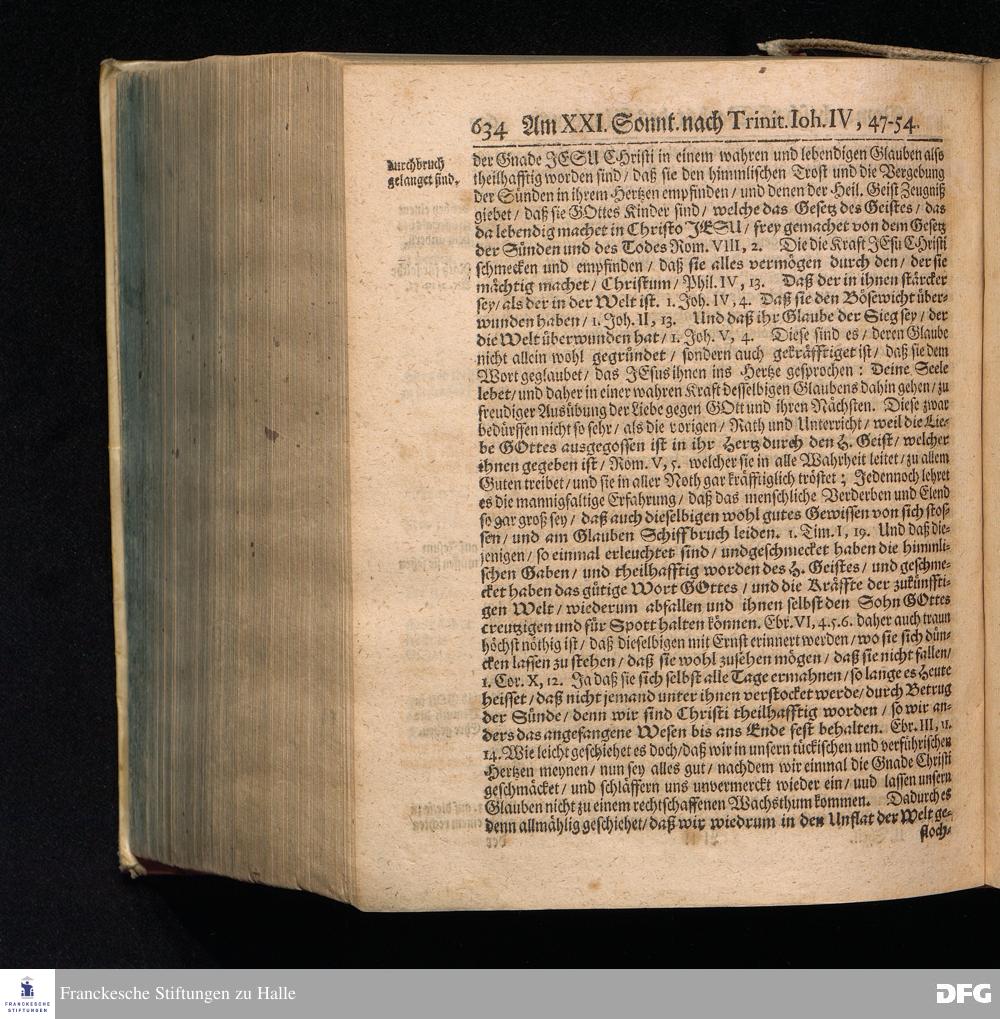 634 Am XXI. Sonnt. nach Trinit. Ioh. IV, 47-54.
durchbruch
gelanget sind.
der Gnade JESU CHristi in einem wahren und lebendigen Glauben also
theilhafftig worden sind / daß sie den himmlischen Trost und die Vergebung
der Sünden in ihrem Hertzen empfinden / und denen der Heil. Geist Zeugniß
giebet / daß sie GOttes Kinder sind / welche das Gesetz des Geistes / das
da lebendig machet in Christo JESU / frey gemachet von dem Gesetz
der Sünden und des Todes Rom. VIII, 2. Die die Kraft JEsu CHristi
schmecken und empfinden / daß sie alles vermögen durch den / der sie
mächtig machet / Christum / Phil. IV, 13. Daß der in ihnen stärcker
sey / als der in der Welt ist. 1. Joh. IV, 4. Daß sie den Bösewicht über-
wunden haben / 1. Joh. II, 13. Und daß ihr Glaube der Sieg sey / der
die Welt überwunden hat / 1. Joh. V, 4. Diese sind es / deren Glaube
nicht allein wohl gegründet / sondern auch gekräfftiget ist / daß sie dem
Wort geglaubet / das JEsus ihnen ins Hertze gesprochen: Deine Seele
lebet / und daher in einer wahren Kraft desselbigen Glaubens dahin gehen / zu
freudiger Ausübung der Liebe gegen GOtt und ihren Nächsten. Diese zwar
bedürffen nicht so sehr / als die vorigen / Rath und Unterricht / weil die Lie-
be GOttes ausgegossen ist in ihr Hertz durch den H. Geist / welcher
ihnen gegeben ist / Rom. V, 5. welcher sie in alle Wahrheit leitet / zu allem
Guten treibet / und sie in aller Noth gar kräfftiglich tröstet; Jedennoch lehret
es die mannigfaltige Erfahrung / daß das menschliche Verderben und Elend
so gar groß sey / daß auch dieselbigen wohl gutes Gewissen von sich stos-
sen / und am Glauben Schiffbruch leiden. 1. Tim. I, 19. Und daß die-
jenigen / so einmal erleuchtet sind / und geschmecket haben die himmli-
schen Gaben / und theilhafftig worden des H. Geistes / und geschme-
cket haben das gütige Wort GOttes / und die Kräffte der zukünffti-
gen Welt / wiederum abfallen und ihnen selbst den Sohn GOttes
creutzigen und für Spott halten können. Ebr. VI, 4. 5. 6. daher auch traun
höchst nöthig ist / daß dieselbigen mit Ernst erinnert werden / wo sie sich dün-
cken lassen zu stehen / daß sie wohl zusehen mögen / daß sie nicht fallen /
1. Cor. X, 12. Ja daß sie sich selbst alle Tage ermahnen / so lange es Heute
heisset / daß nicht jemand unter ihnen verstocket werde / durch Betrug
der Sünde / denn wir sind Christi theilhafftig worden / so wir an-
ders das angefangene Wesen bis ans Ende fest behalten. Ebr. III, 11.
14. Wie leicht geschiehet es doch / daß wir in unsern tückischen und verführischen
Hertzen meynen / nun sey alles gut / nachdem wir einmal die Gnade Christi
geschmäcket / und schläffern uns unvermerckt wieder ein / uud lassen unsern
Glauben nicht zu einem rechtschaffenen Wachsthum kommen. Dadurch es
denn allmählig geschiehet / daß wir wiedrum in den Unflat der Welt ge-
floch-
FRANCKESCHE
STIFTUNGEN
Franckesche Stiftungen zu Halle
DFG